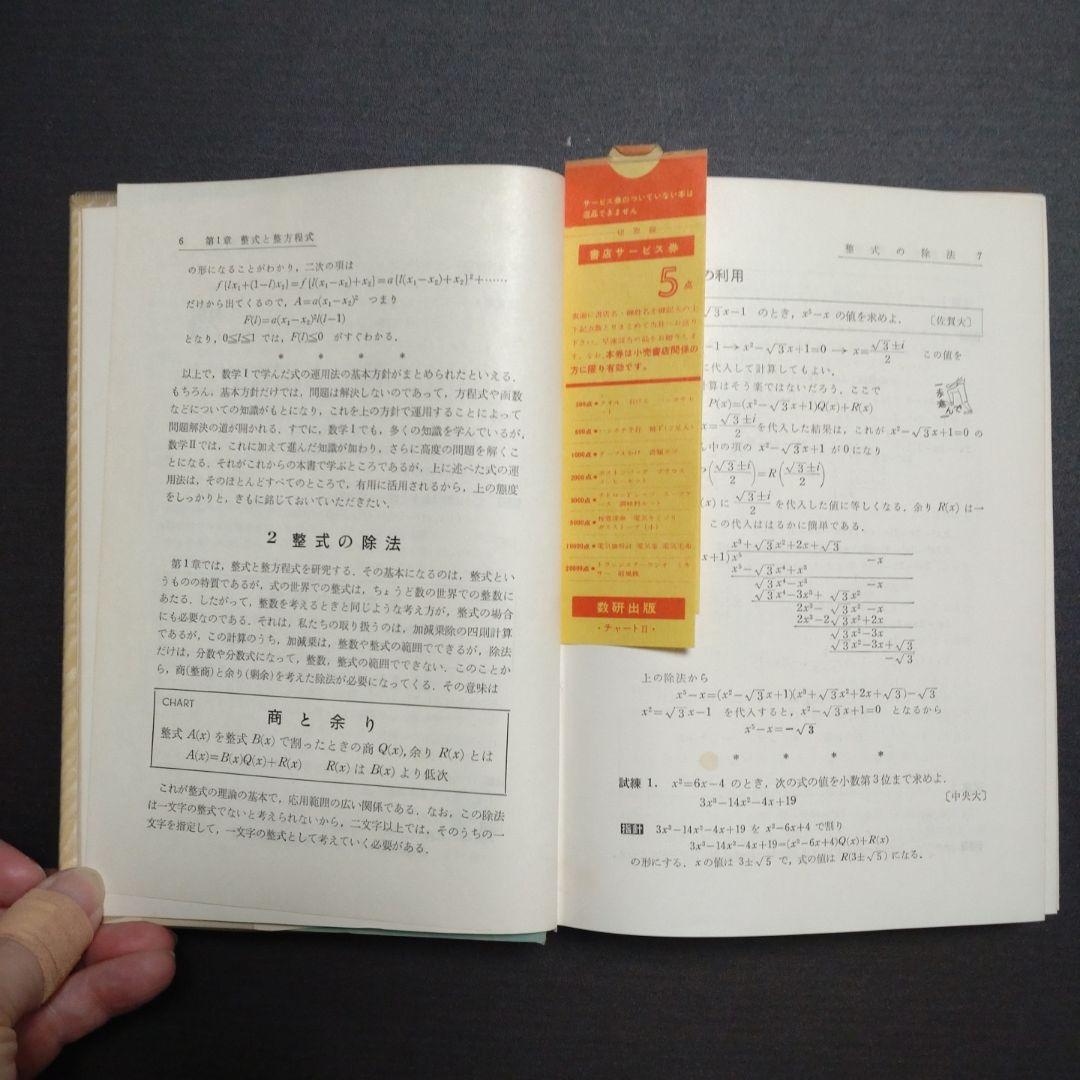 6 第1章 整式と整方程式
の形になることがわかり，二次の項は
f{lx₁+(1−l)x₂}=f{l(x₁−x₂)+x₂}=a{l(x₁−x₂)+x₂}²+……
だけから出てくるので，A=a(x₁−x₂)² つまり
F(l)=a(x₁−x₂)²l(l−1)
となり，0≦l≦1 では，F(l)≦0 がすぐわかる．
* * * *
以上で，数学Ⅰで学んだ式の運用法の基本方針がまとめられたといえる．
もちろん，基本方針だけでは，問題は解決しないのであって，方程式や函数
などについての知識がもとになり，これを上の方針で運用することによって
問題解決の道が開かれる．すでに，数学Ⅰでも，多くの知識を学んでいるが，
数学Ⅱでは，これに加えて進んだ知識が加わり，さらに高度の問題を解くこ
とになる．それがこれからの本書で学ぶところであるが，上に述べた式の運
用法は，そのほとんどすべてのところで，有用に活用されるから，上の態度
をしっかりと，きもに銘じておいていただきたい．
2 整式の除法
第1章では，整式と整方程式を研究する．その基本になるのは，整式とい
うものの特質であるが，式の世界での整式は，ちょうど数の世界での整数に
あたる．したがって，整数を考えるときと同じような考え方が，整式の場合
にも必要なのである．それは，私たちの取り扱うのは，加減乗除の四則計算
であるが，この計算のうち，加減乗は，整数や整式の範囲でできるが，除法
だけは，分数や分数式になって，整数，整式の範囲でできない．このことか
ら，商(整商)と余り(剰余)を考えた除法が必要になってくる．その意味は
CHART
商と余り
整式 A(x) を整式 B(x) で割ったときの商 Q(x), 余り R(x) とは
A(x)=B(x)Q(x)+R(x) R(x) は B(x) より低次
これが整式の理論の基本で，応用範囲の広い関係である．なお，この除法
は一文字の整式でないと考えられないから，二文字以上では，そのうちの一
文字を指定して，一文字の整式として考えていく必要がある．
サービス券のついていない本は
返品できません
書店サービス券
5点
下さい．早速該当の品をお贈呈しま
す．なお，本券は小売書店関係の
方に限り有効です。
数研出版
・チャートⅡ・
整式の除法 7
の利用
√3x−1 のとき，x⁵−x の値を求めよ． 〔佐賀大〕
−1→x²−√3x+1=0 → x=(√3±i)/2 この値を
に代入して計算してもよい．
計算はそう楽ではないだろう．ここで
P(x)=(x²−√3x+1)Q(x)+R(x)
x=(√3±i)/2 を代入した結果は，これが x²−√3x+1=0 の
ん中の項の x²−√3x+1 が0になり
((√3±i)/2)=R((√3±i)/2)
(x) に (√3±i)/2 を代入した値に等しくなる．余り R(x) は一
この代入ははるかに簡単である．
一歩塞んで
x³+√3x²+2x+√3
x+1)x⁵ −x
x⁵−√3x⁴+x³
√3x⁴−x³ −x
√3x⁴−3x³+√3x²
2x³−√3x²−x
2x³−2√3x²+2x
√3x²−3x
√3x²−3x+√3
−√3
上の除法から
x⁵−x=(x²−√3x+1)(x³+√3x²+2x+√3)−√3
x²=√3x−1 を代入すると，x²−√3x+1=0 となるから
x⁵−x=−√3
* * * *
試練 1． x²=6x−4 のとき，次の式の値を小数第3位まで求めよ．
3x³−14x²−4x+19 〔中央大〕
指針 3x³−14x²−4x+19 を x²−6x+4 で割り
3x³−14x²−4x+19=(x²−6x+4)Q(x)+R(x)
の形にする．xの値は 3±√5 で，式の値は R(3±√5) になる．